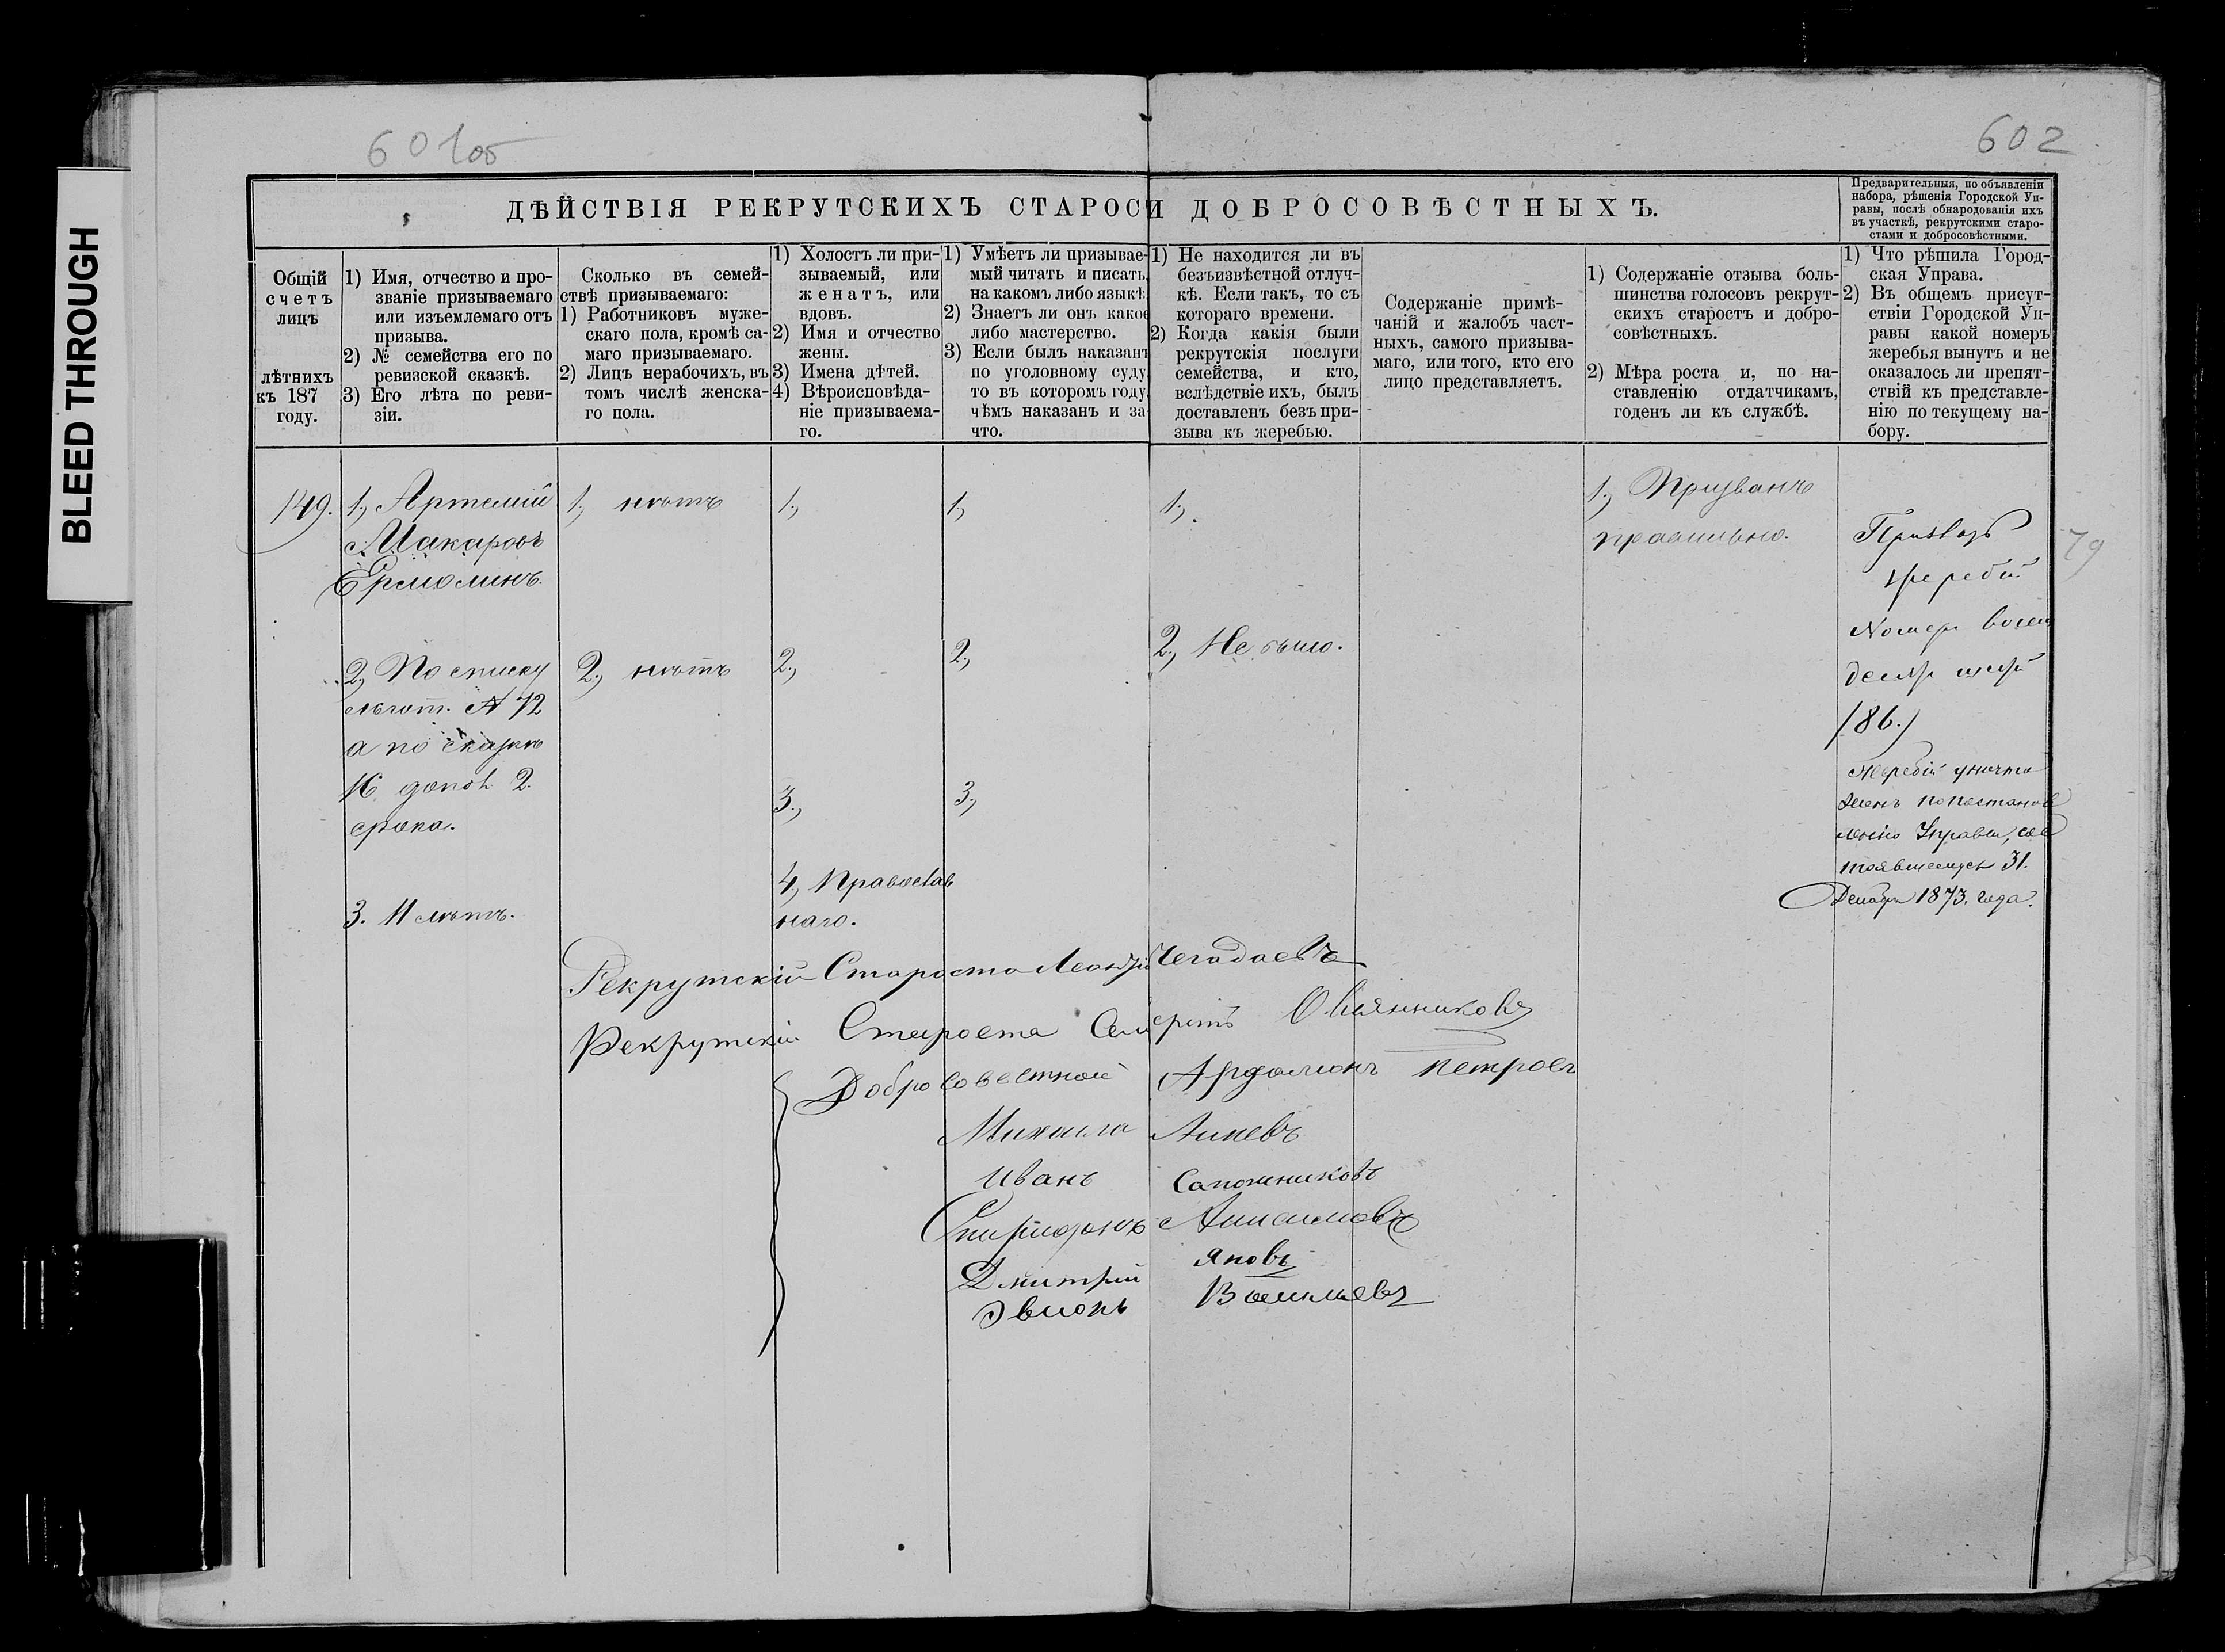 BLEED THROUGH
601об
602
ДѢЙСТВІЯ РЕКРУТСКИХЪ СТАРОС И ДОБРОСОВѢСТНЫХЪ.
Предварительныя, по объявленіи
набора, рѣшенія Городской Уп-
равы, послѣ обнародованія ихъ
въ участкѣ, рекрутскими старо-
стами и добросовѣстными.
Общій
счетъ
лицъ
лѣтнихъ
къ 187
году.
1) Имя, отчество и про-
званіе призываемаго
или изъемлемаго отъ
призыва.
2) № семейства его по
ревизской сказкѣ.
3) Его лѣта по реви-
зіи.
Сколько въ семей-
ствѣ призываемаго:
1) Работниковъ муже-
скаго пола, кромѣ са-
маго призываемаго.
2) Лицъ нерабочихъ, въ
томъ числѣ женска-
го пола.
1) Холостъ ли при-
зываемый, или
женатъ, или
вдовъ.
2) Имя и отчество
жены.
3) Имена дѣтей.
4) Вѣроисповѣда-
ніе призываема-
го.
1) Умѣетъ ли призывае-
мый читать и писать,
на какомъ либо языкѣ.
2) Знаетъ ли онъ какое
либо мастерство.
3) Если былъ наказанъ
по уголовному суду
то въ которомъ году,
чѣмъ наказанъ и за
что.
1) Не находится ли въ
безъизвѣстной отлуч-
кѣ. Если такъ, то съ
котораго времени.
2) Когда какія были
рекрутскія послуги
семейства, и кто,
вслѣдствіе ихъ, былъ
доставленъ безъ при-
зыва къ жеребью.
Содержаніе примѣ-
чаній и жалобъ част-
ныхъ, самого призыва-
маго, или того, кто его
лицо представляетъ.
1) Содержаніе отзыва боль-
шинства голосовъ рекрут-
скихъ старостъ и добро-
совѣстныхъ.
2) Мѣра роста и, по на-
ставленію отдатчикамъ,
годенъ ли къ службѣ.
1) Что рѣшила Город-
ская Управа.
2) Въ общемъ присут-
ствіи Городской Уп-
равы какой номеръ
жеребья вынутъ и не
оказалось ли препят-
ствій къ представле-
нію по текущему на-
бору.
149.
1, Артемій
Макаровъ
Ермолинъ.
2, По списку
льгот. № 72
а по сказкѣ
16 допол 2.
срока.
3. 11 лѣтъ.
1, нѣтъ
2, нѣтъ
1,
2,
3,
4, Православ
наго.
1,
2,
3,
1,
2, Не было.
1, Призванъ
правильно.
жеребій
Номеръ восем
/86./
79
Жеребій уничто
женъ по постанов
ленію Управы, сос
тоявшемуся 31.
Декабря 1873. года.
Рекрутскій Староста Чегодаевъ
Рекрутскій Староста Овчинниковъ
Добросовестной Ардалионъ петровъ
Михаила
Иванъ Сапожниковъ
Анисимовъ
Дмитрий Яковъ
Васильевъ